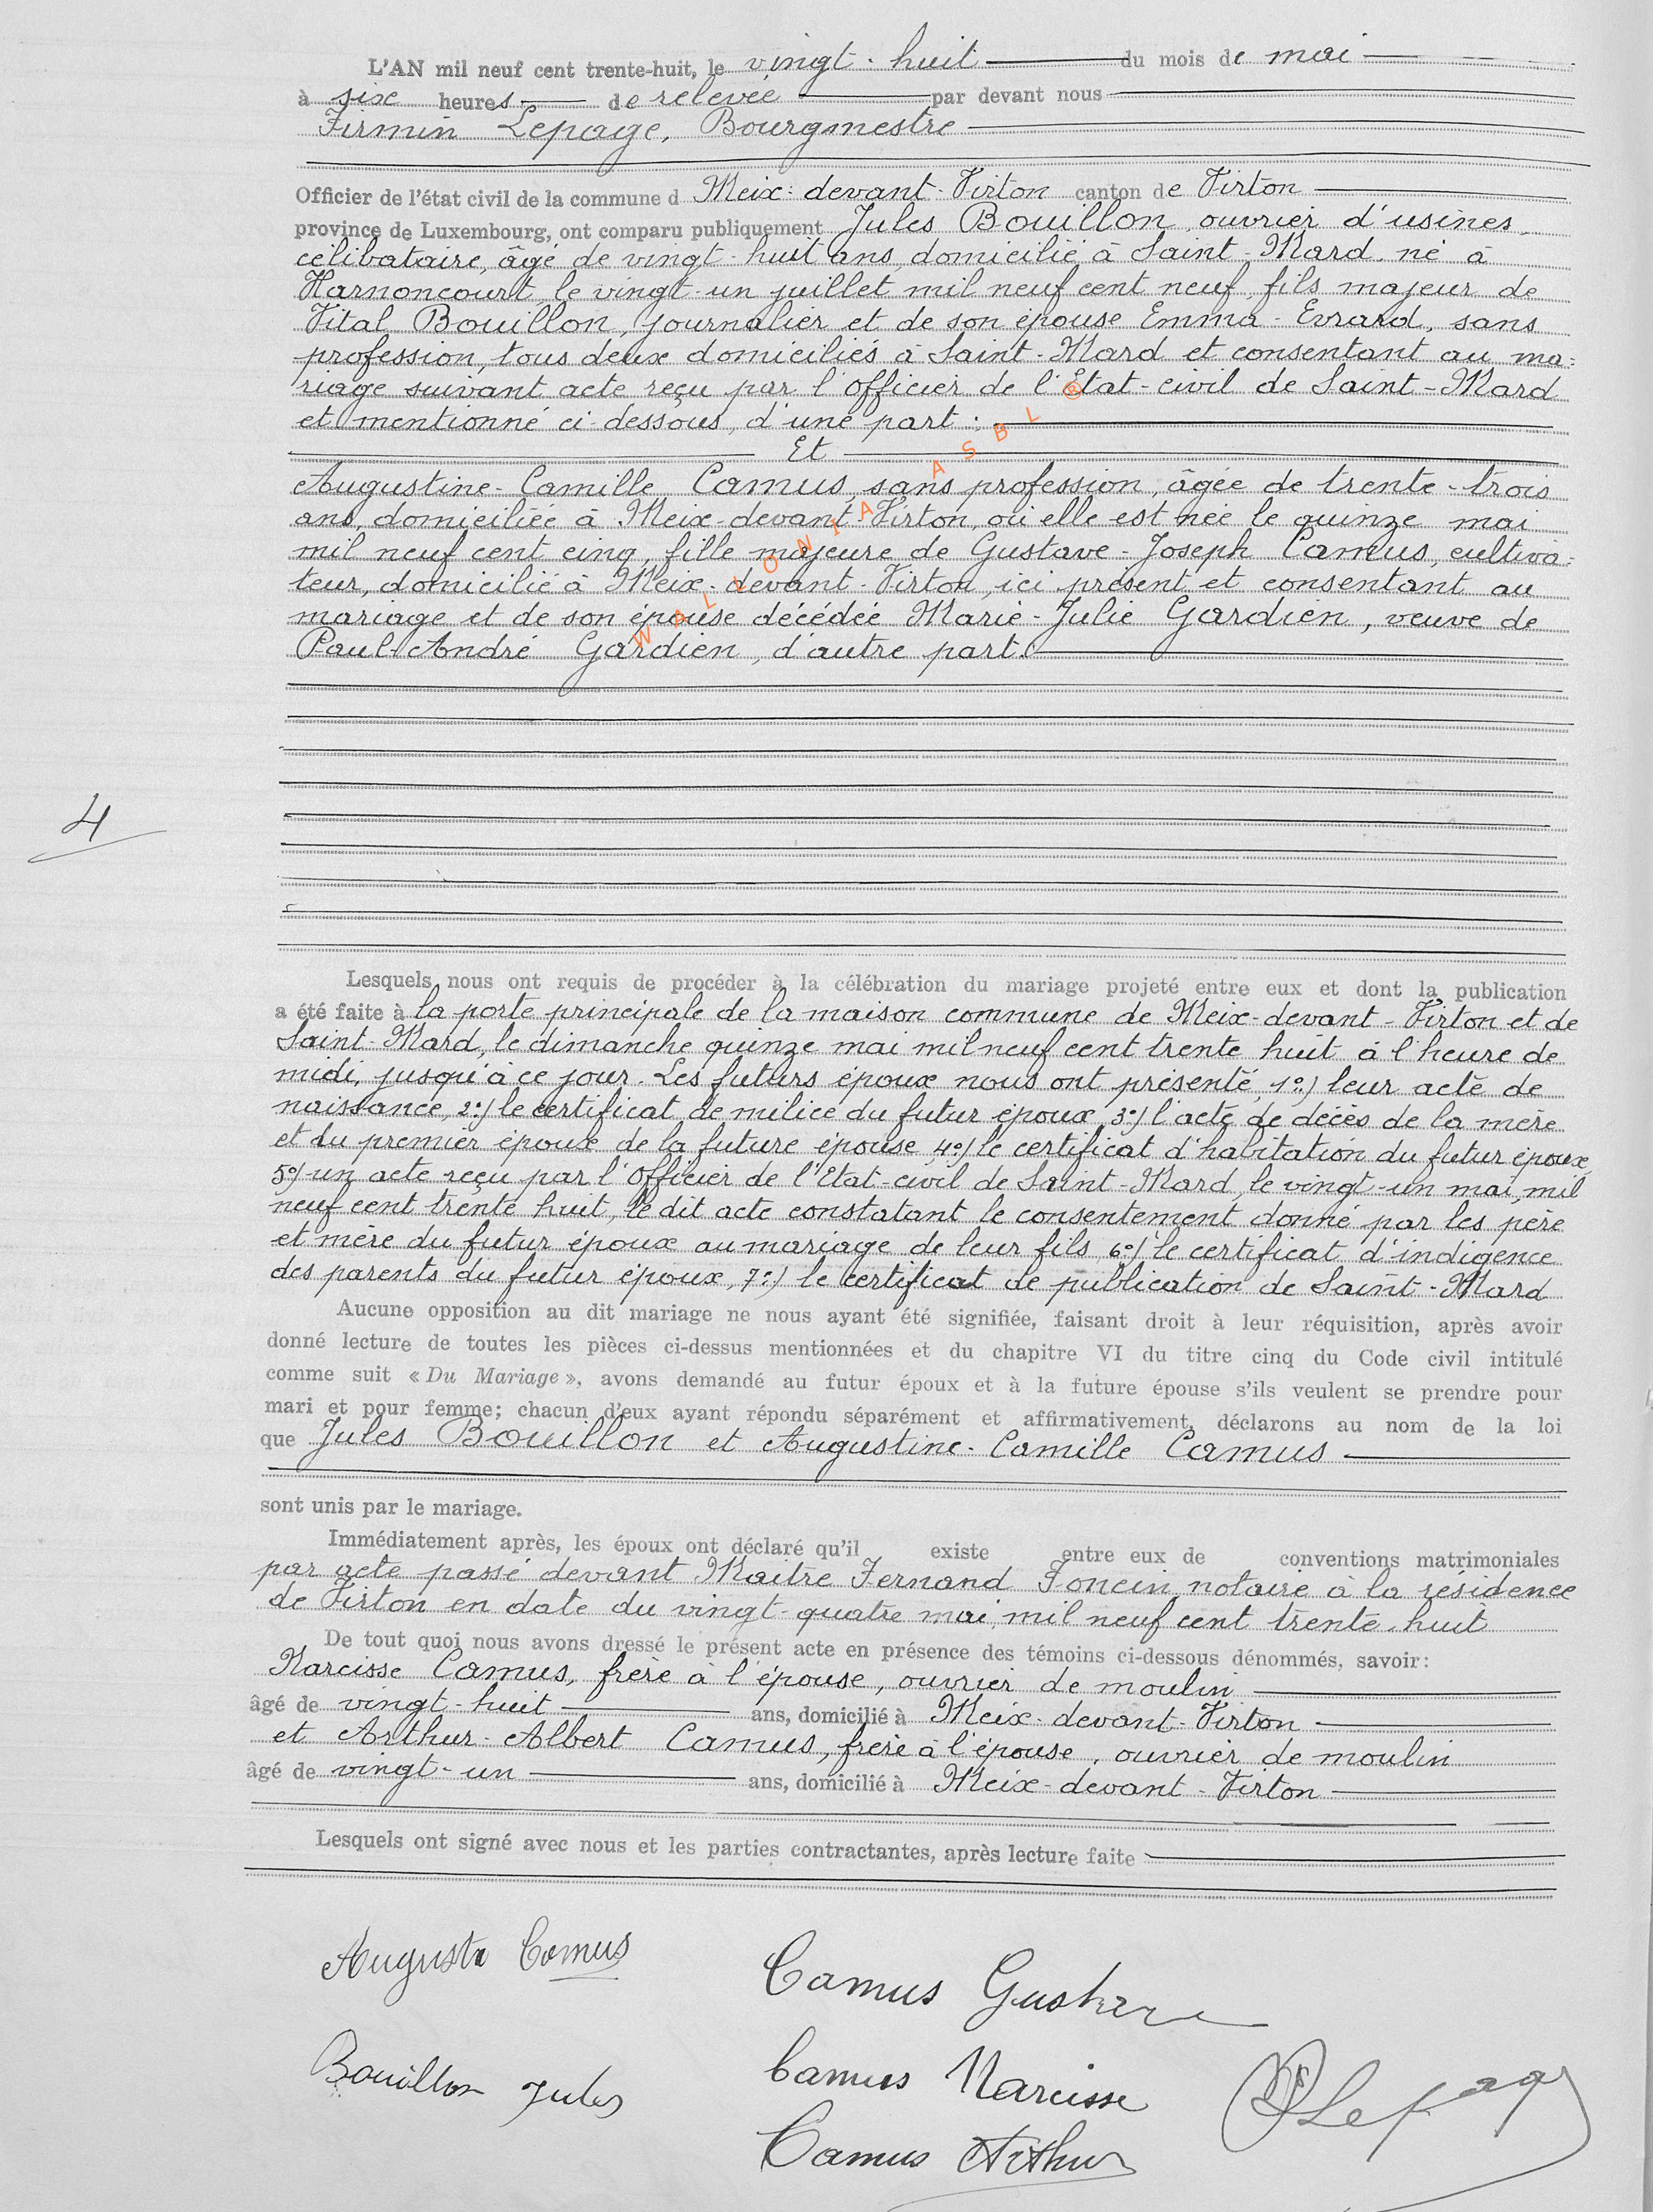 L'AN mil neuf cent trente-huit, le vingt-huit du mois de mai
à six heures de relevée par devant nous
Firmin Lepage, Bourgmestre
Officier de l'état civil de la commune d Meix-devant-Virton canton de Virton
province de Luxembourg, ont comparu publiquement Jules Bouillon, ouvrier d'usines,
célibataire, âgé de vingt-huit ans, domicilié à Saint-Mard, né à
Harnoncourt, le vingt-un juillet mil neuf cent neuf, fils majeur de
Vital Bouillon, journalier et de son épouse Emma Evrard, sans
profession, tous deux domiciliés à Saint-Mard et consentant au ma=
riage suivant acte reçu par l'officier de l'Etat-civil de Saint-Mard
et mentionné ci-dessous, d'une part ;
Et
Augustine-Camille Camus, sans profession, âgée de trente-trois
ans, domiciliée à Meix-devant-Virton, où elle est née le quinze mai
mil neuf cent cinq, fille majeure de Gustave-Joseph Camus, cultiva=
teur, domicilié à Meix-devant-Virton, ici présent et consentant au
mariage et de son épouse décédée Marie-Julie Gardien, veuve de
Paul-André Gardien, d'autre part.
WALLONIA ASBL ®
4
Lesquels nous ont requis de procéder à la célébration du mariage projeté entre eux et dont la publication
a été faite à la porte principale de la maison commune de Meix-devant-Virton et de
Saint-Mard, le dimanche quinze mai mil neuf cent trente huit à l'heure de
midi, jusqu'à ce jour. Les futurs époux nous ont présenté, 1°) leur acte de
naissance, 2°) le certificat de milice du futur époux, 3°) l'acte de décès de la mère
et du premier époux de la future épouse, 4°) le certificat d'habitation du futur époux,
5°) un acte reçu par l'officier de l'Etat-civil de Saint-Mard, le vingt-un mai, mil
neuf cent trente huit, le dit acte constatant le consentement donné par les père
et mère du futur époux au mariage de leur fils, 6°) le certificat d'indigence
des parents du futur époux, 7°) le certificat de publication de Saint-Mard
Aucune opposition au dit mariage ne nous ayant été signifiée, faisant droit à leur réquisition, après avoir
donné lecture de toutes les pièces ci-dessus mentionnées et du chapitre VI du titre cinq du Code civil intitulé
comme suit « Du Mariage », avons demandé au futur époux et à la future épouse s'ils veulent se prendre pour
mari et pour femme; chacun d'eux ayant répondu séparément et affirmativement, déclarons au nom de la loi
que Jules Bouillon et Augustine-Camille Camus
sont unis par le mariage.
Immédiatement après, les époux ont déclaré qu'il existe entre eux de conventions matrimoniales
par acte passé devant Maître Fernand Foncin, notaire à la résidence
de Virton en date du vingt-quatre mai, mil neuf cent trente-huit
De tout quoi nous avons dressé le présent acte en présence des témoins ci-dessous dénommés, savoir:
Narcisse Camus, frère à l'épouse, ouvrier de moulin
âgé de vingt-huit ans, domicilié à Meix-devant-Virton
et Arthur-Albert Camus, frère à l'épouse, ouvrier de moulin
âgé de vingt-un ans, domicilié à Meix-devant-Virton
Lesquels ont signé avec nous et les parties contractantes, après lecture faite
Augusta Camus
Camus Gustave
Bouillon Jules
Camus Narcisse
Lepage
Camus Arthur